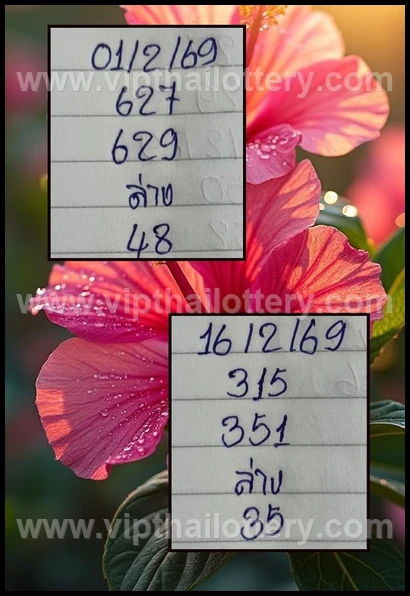 01/2/69
www.vipthailottery.com
627
629
ล่าง
48
www.vipthailottery.com
16/2/69
315
351
ล่าง
35
www.vipthailottery.com